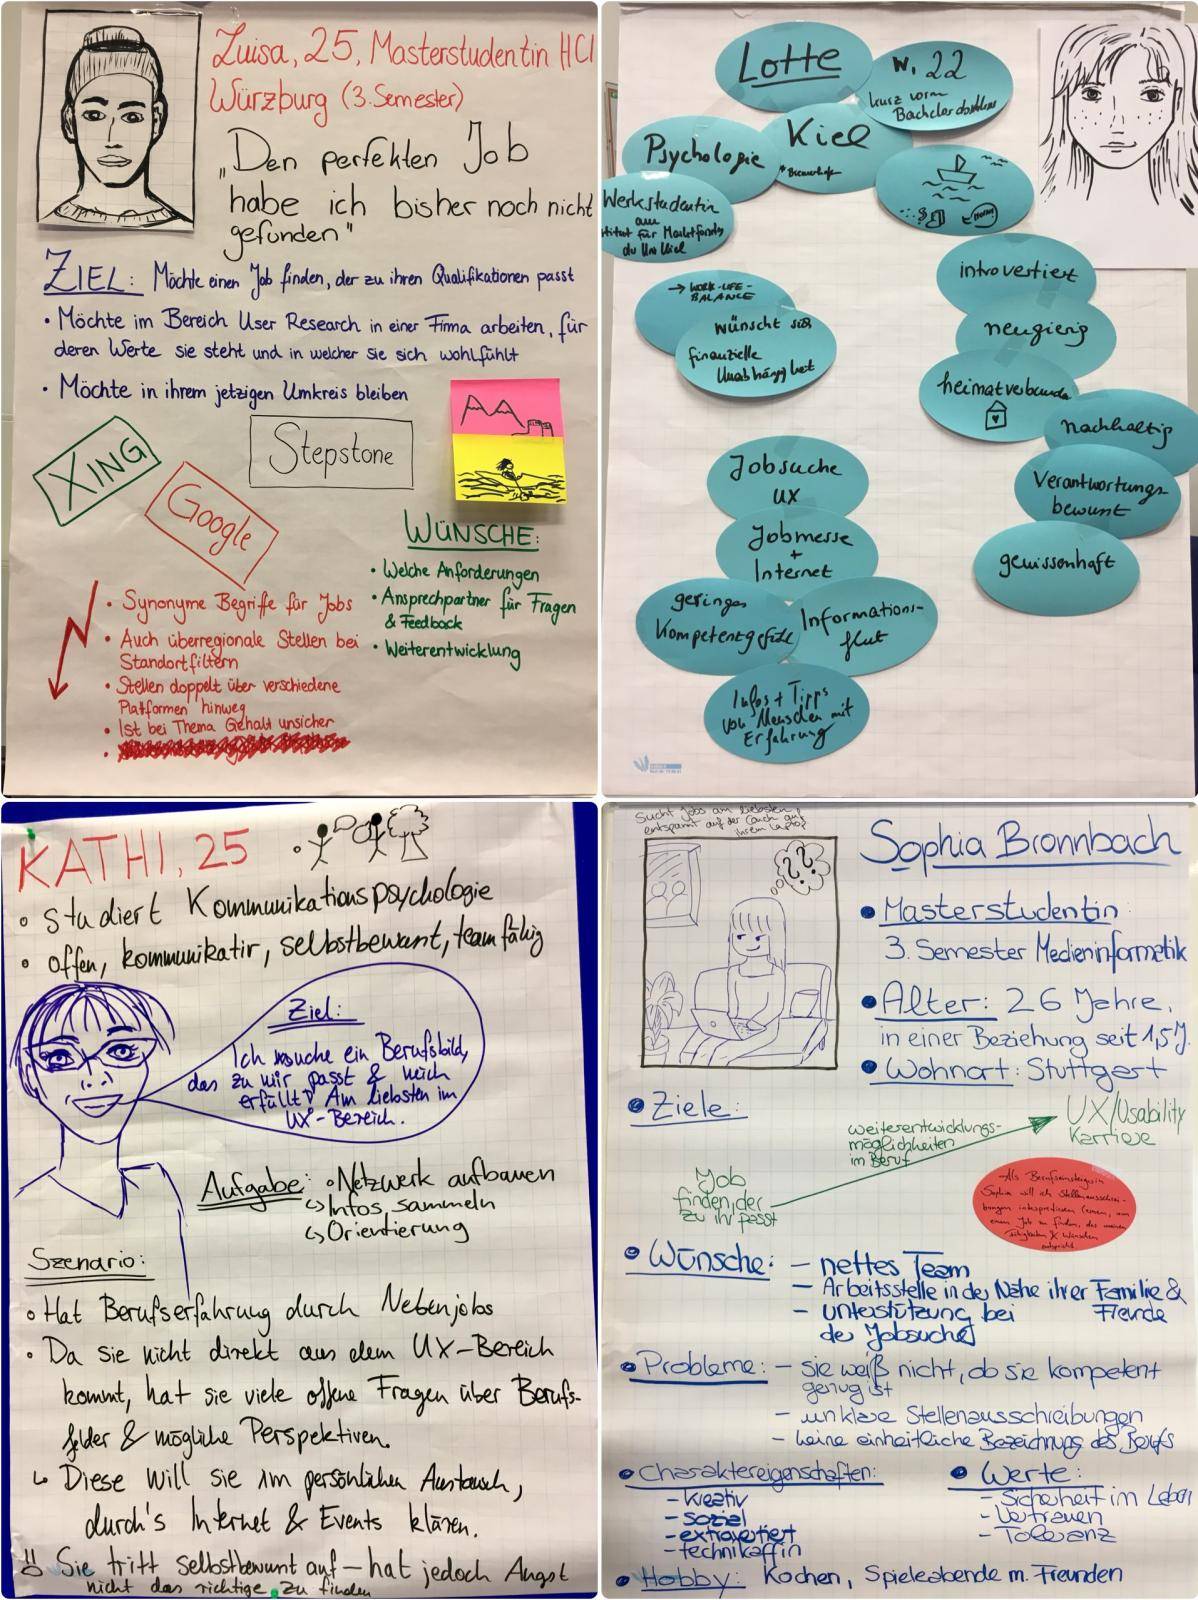 Luisa, 25, Masterstudentin HCI
Würzburg (3. Semester)
„Den perfekten Job
habe ich bisher noch nicht
gefunden"
ZIEL: Möchte einen Job finden, der zu ihren Qualifikationen passt
• Möchte im Bereich User Research in einer Firma arbeiten, für
deren Werte sie steht und in welcher sie sich wohlfühlt
• Möchte in ihrem jetzigen Umkreis bleiben
XING
Google
Stepstone
WÜNSCHE:
• Welche Anforderungen
• Ansprechpartner für Fragen
& Feedback
• Weiterentwicklung
• Synonyme Begriffe für Jobs
• Auch überregionale Stellen bei
Standortfiltern
• Stellen doppelt über verschiedene
Plattformen hinweg
• Ist bei Thema Gehalt unsicher
Lotte
W, 22
kurz vorm
Psychologie
Kiel
* Bremerhafen
Werkstudentin
am
für Marktforsch
du Uni Kiel
→ WORK-LIFE-
BALANCE
wünscht sich
finanzielle
Unabhängigkeit
introvertiert
neugierig
heimatverbunden
nachhaltig
Verantwortungs-
bewusst
gewissenhaft
Jobsuche
UX
Jobmesse
+
Internet
geringes
Kompetenzgefühl
Informations-
flut
Infos + Tipps
von Menschen mit
Erfahrung
KATHI, 25
• studiert Kommunikationspsychologie
• offen, kommunikativ, selbstbewusst, teamfähig
Ziel:
Ich suche ein Berufsbild,
das zu mir passt & mich
erfüllt! Am liebsten im
UX-Bereich.
Aufgabe: • Netzwerk aufbauen
↳ Infos sammeln
↳ Orientierung
Szenario:
• Hat Berufserfahrung durch Nebenjobs
• Da sie nicht direkt aus dem UX-Bereich
kommt, hat sie viele offene Fragen über Berufs-
felder & mögliche Perspektiven.
↳ Diese will sie im persönlichen Austausch,
durch's Internet & Events klären.
Sie tritt selbstbewusst auf – hat jedoch Angst
nicht das richtige zu finden
Sucht Jobs am liebsten
entspannt auf der Couch auf
ihrem Laptop
???
Sophia Bronnbach
• Masterstudentin:
3. Semester Medieninformatik
• Alter: 26 Jahre,
in einer Beziehung seit 1,5 J.
• Wohnort: Stuttgart
• Ziele:
Job
finden, der
zu ihr passt
weiterentwicklungs-
möglichkeiten
im Beruf
UX/Usability
Karriere
Als Berufseinsteigerin
Sophia will ich Stellenausschrei-
bungen interpretieren lernen, um
einen Job zu finden, der meinen
Fähigkeiten & Wünschen
entspricht
• Wünsche: – nettes Team
– Arbeitsstelle in der Nähe ihrer Familie &
Freunde
– unterstützung bei
der Jobsuche
• Probleme: – sie weiß nicht, ob sie kompetent
genug ist
– unklare Stellenausschreibungen
– keine einheitliche Bezeichnung des Berufs
• Charaktereigenschaften:
– kreativ
– sozial
– extravertiert
– technikaffin
• Werte:
– Sicherheit im Leben
– Vertrauen
– Toleranz
• Hobby: Kochen, Spieleabende m. Freunden